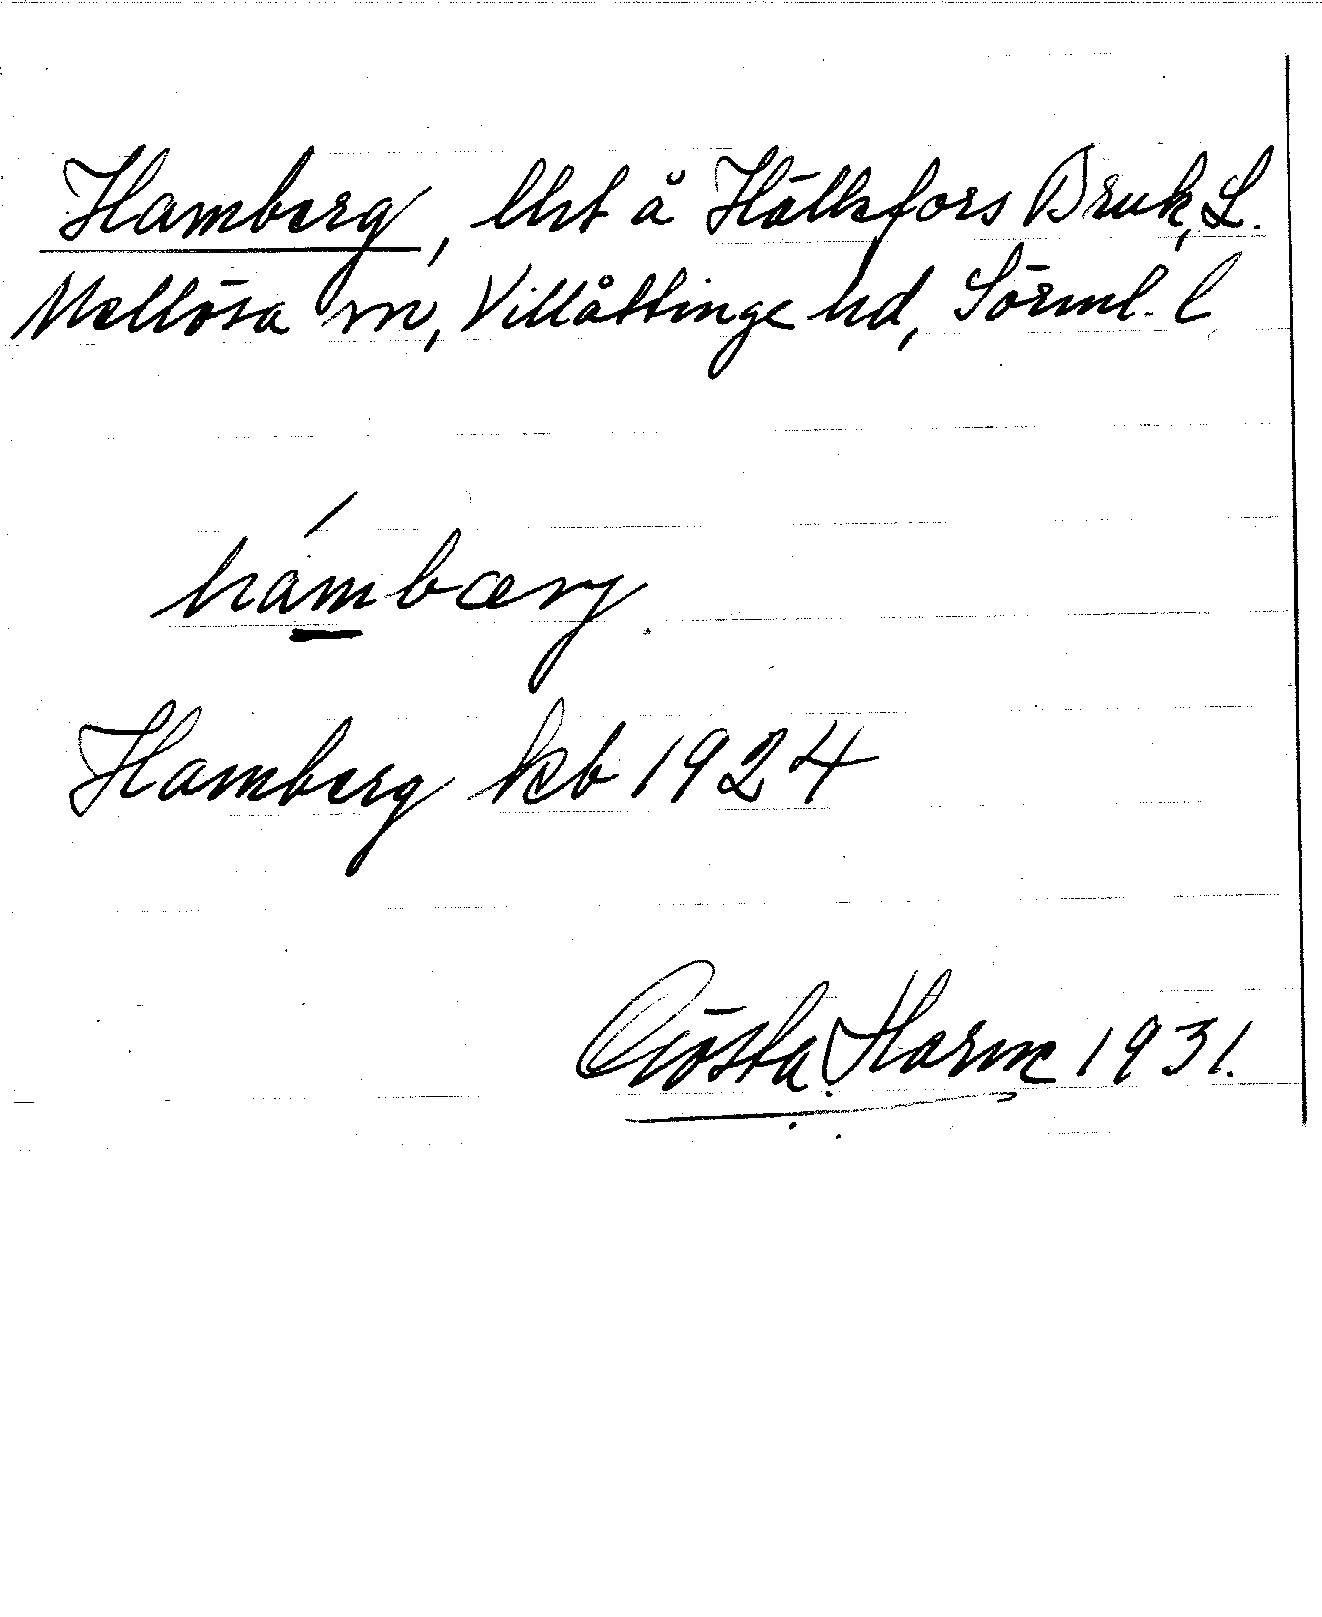 Hamberg, lht å Hälleforsbruk, L.
Mellösa sn, Villåttinge hd, Sörml. l
hámbærj.
Hamberg kb 1924
Gösta Horm 1931.